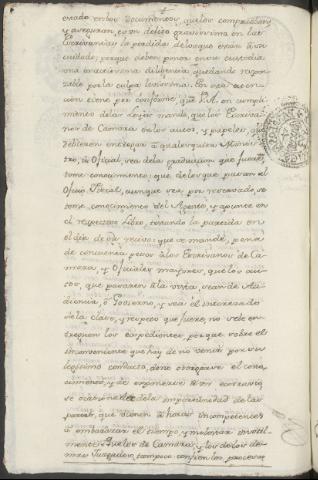 creado en los Documentos, que los comprueban,
y aseguran, es un delito gravissimo en las
Escrivanias la perdida de los que estan à su
cuidado, porque deben poner en su custodia
una exactissima diligencia quedando respon-
sables por la culpa levissima. Por esta aten-
cion tiene por conforme, que V.A. en cumpli-
miento de las Leyes mande, que los Escriva-
nos de Camara de los autos, y papeles, que
debiesen entregar à qualesquiera Minis-
tro, ù Oficial, sea de la graduacion que fuere,
tome conocimiento; que de los que pasaren al
Oficio Fiscal, aunque sea por reservado, se
tome conocimiento del Agente, y apunte en
el respectivo Libro, tildando la partida en
el dia de su recivo; que se mande, pena
de comiento à los Escrivanos de Ca-
mara, y Oficiales mayores, que los au-
tos, que pasaren à la vista, sean de Au-
diencia, ò Govierno, y sea el interesado
de la clase, y respeto que fuere, no se le en-
treguen los expedientes, porque sobre el
inconveniente que hay de no venir por su
legitimo conducto, debe observarse el cono-
cimiento, y de exponerse à su extravio,
se ocasiona de la importunidad de las
partes, que vienen à hacer incompetentes
à embarazar el tiempo, y molestar inutil-
mente à los de Camara, y los de los de-
mas Juzgados, tampoco confien los procesos